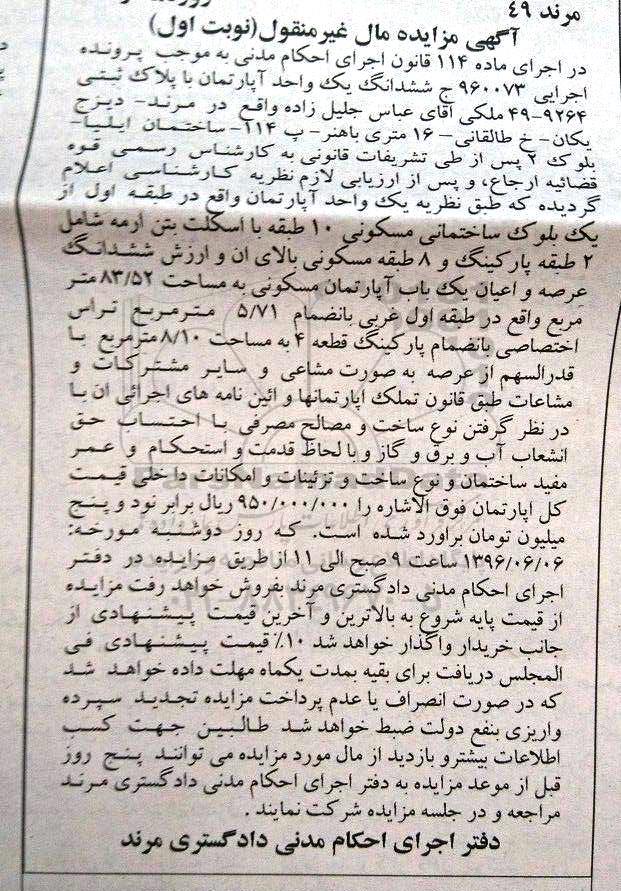 مرند ۴۹
آگهی مزایده مال غیرمنقول(نوبت اول)
در اجرای ماده ۱۱۴ قانون اجرای احکام مدنی به موجب پرونده
اجرایی ۹۶۰۰۷۳ ج ششدانگ یک واحد آپارتمان با پلاک ثبتی
۹۲۶۴-۴۹ ملکی آقای عباس جلیل زاده واقع در مرند- دیزج
یکان- خ طالقانی- ۱۶ متری باهنر- پ ۱۱۴-ساختمان ایلیا-
بلوک ۲ پس از طی تشریفات قانونی به کارشناس رسمی قوه
قضائیه ارجاع، و پس از ارزیابی لازم نظریه کارشناسی اعلام
گردیده که طبق نظریه یک واحد آپارتمان واقع در طبقه اول از
یک بلوک ساختمانی مسکونی ۱۰ طبقه با اسکلت بتن ارمه شامل
۲ طبقه پارکینگ و ۸ طبقه مسکونی بالای ان و ارزش ششدانگ
عرصه و اعیان یک باب آپارتمان مسکونی به مساحت ۸۳/۵۲ متر
مربع واقع در طبقه اول غربی بانضمام ۵/۷۱ مترمربع تراس
اختصاصی بانضمام پارکینگ قطعه ۴ به مساحت ۸/۱۰ مترمربع با
قدرالسهم از عرصه به صورت مشاعی و سایر مشترکات و
مشاعات طبق قانون تملک اپارتمانها و ائین نامه های اجرائی ان با
در نظر گرفتن نوع ساخت و مصالح مصرفی با احتساب حق
انشعاب آب و برق و گاز و با لحاظ قدمت و استحکام و عمر
مفید ساختمان و نوع ساخت و تزئینات و امکانات داخلی قیمت
کل اپارتمان فوق الاشاره را ۹۵۰/۰۰۰/۰۰۰ ریال برابر نود و پنج
میلیون تومان براورد شده است. که روز دوشنبه مورخه:
۱۳۹۶/۰۶/۰۶ ساعت ۹ صبح الی ۱۱ از طریق مزایده در دفتر
اجرای احکام مدنی دادگستری مرند بفروش خواهد رفت مزایده
از قیمت پایه شروع به بالاترین و آخرین قیمت پیشنهادی از
جانب خریدار واگذار خواهد شد ۱۰٪ قیمت پیشنهادی فی
المجلس دریافت برای بقیه بمدت یکماه مهلت داده خواهد شد
که در صورت انصراف یا عدم پرداخت مزایده تجدید سپرده
واریزی بنفع دولت ضبط خواهد شد طالبین جهت کسب
اطلاعات بیشترو بازدید از مال مورد مزایده می توانند پنج روز
قبل از موعد مزایده به دفتر اجرای احکام مدنی دادگستری مرند
مراجعه و در جلسه مزایده شرکت نمایند .
دفتر اجرای احکام مدنی دادگستری مرند